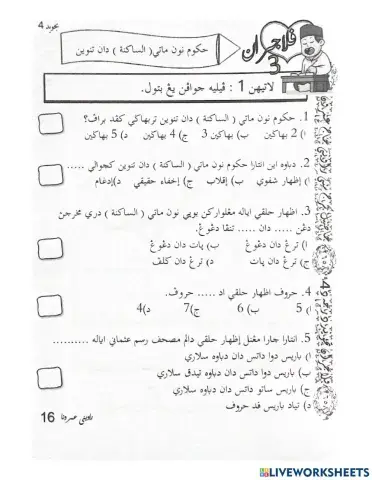 تجويد 4
ڤلاجرن
3
حكوم نون ماتي( الساكنة ) دان تنوين
لاتيهن 1 : ڤيليه جواڤن يڠ بتول.
1. حكوم نون ماتي ( الساكنة ) دان تنوين تربهاڬي كڤد براڤ؟
ا) 2 بهاڬين ب) بهاڬين 3 ج) 4 بهاڬين د) 5 بهاڬين
2. دباوه اين انتارا حكوم نون ماتي ( الساكنة ) دان تنوين كچوالي .....
ا) إظهار شفوي ب) إقلاب ج) إخفاء حقيقي د)إدغام
3. اظهار حلقي اياله مڠلواركن بوڽي نون ماتي ( الساكنة ) دري مخرجن
دڠن ..... دان ..... تنڤا دڠوڠ
ا) ترڠ دان دڠوڠ ب) ڽات دان دڠوڠ
ج) ترڠ دان ڽات د) ترڠ دان كلڤ
4. حروف اظهار حلقي اد ..... حروف.
ا) 5 ب) 6 ج)7 د)4
5. انتارا چارا مڠنل إظهار حلقي دالم مصحف رسم عثماني اياله ..........
ا) باريس دوا داتس دان دباوه سلاري
ب) باريس دوا داتس دان دباوه تيدق سلاري
ج) باريس ساتو داتس دان دباوه سلاري
د) تياد باريس ڤد حروف
16
LIVEWORKSHEETS